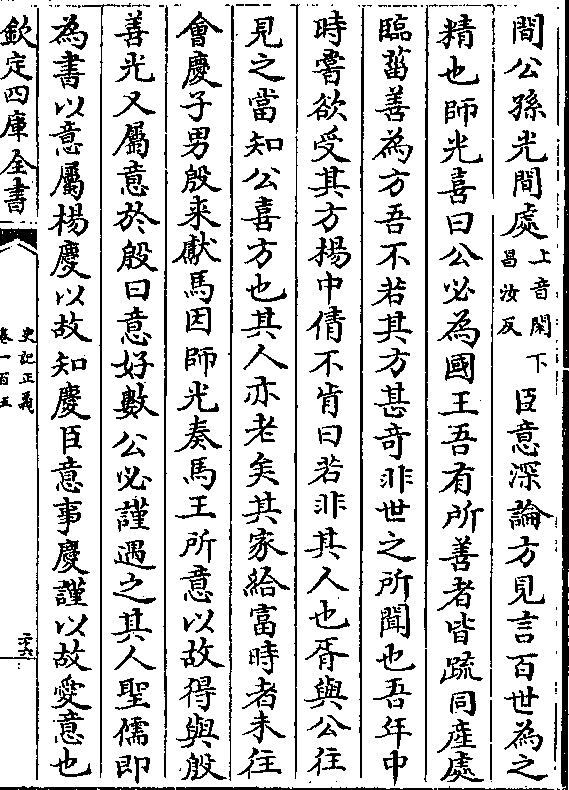 間公孫光間處上音閑下昌汝反臣意深論方見言百世為之
精也師光喜曰公必為國工吾有所善者皆疏同産處
臨菑善為方吾不若其方甚奇非世之所聞也吾年中
時嘗欲受其方楊中倩不肯曰若非其人也胥與公往
見之當知公喜方也其人亦老矣其家給富時者未往
會慶子男殷来獻馬因師光奏馬王所意以故得與殷
善光又屬意於殷曰意好數公必謹遇之其人聖儒即
為書以意屬楊慶以故知慶臣意事慶謹以故愛意也
欽定四庫全書
史記正義
卷一百五
二十六